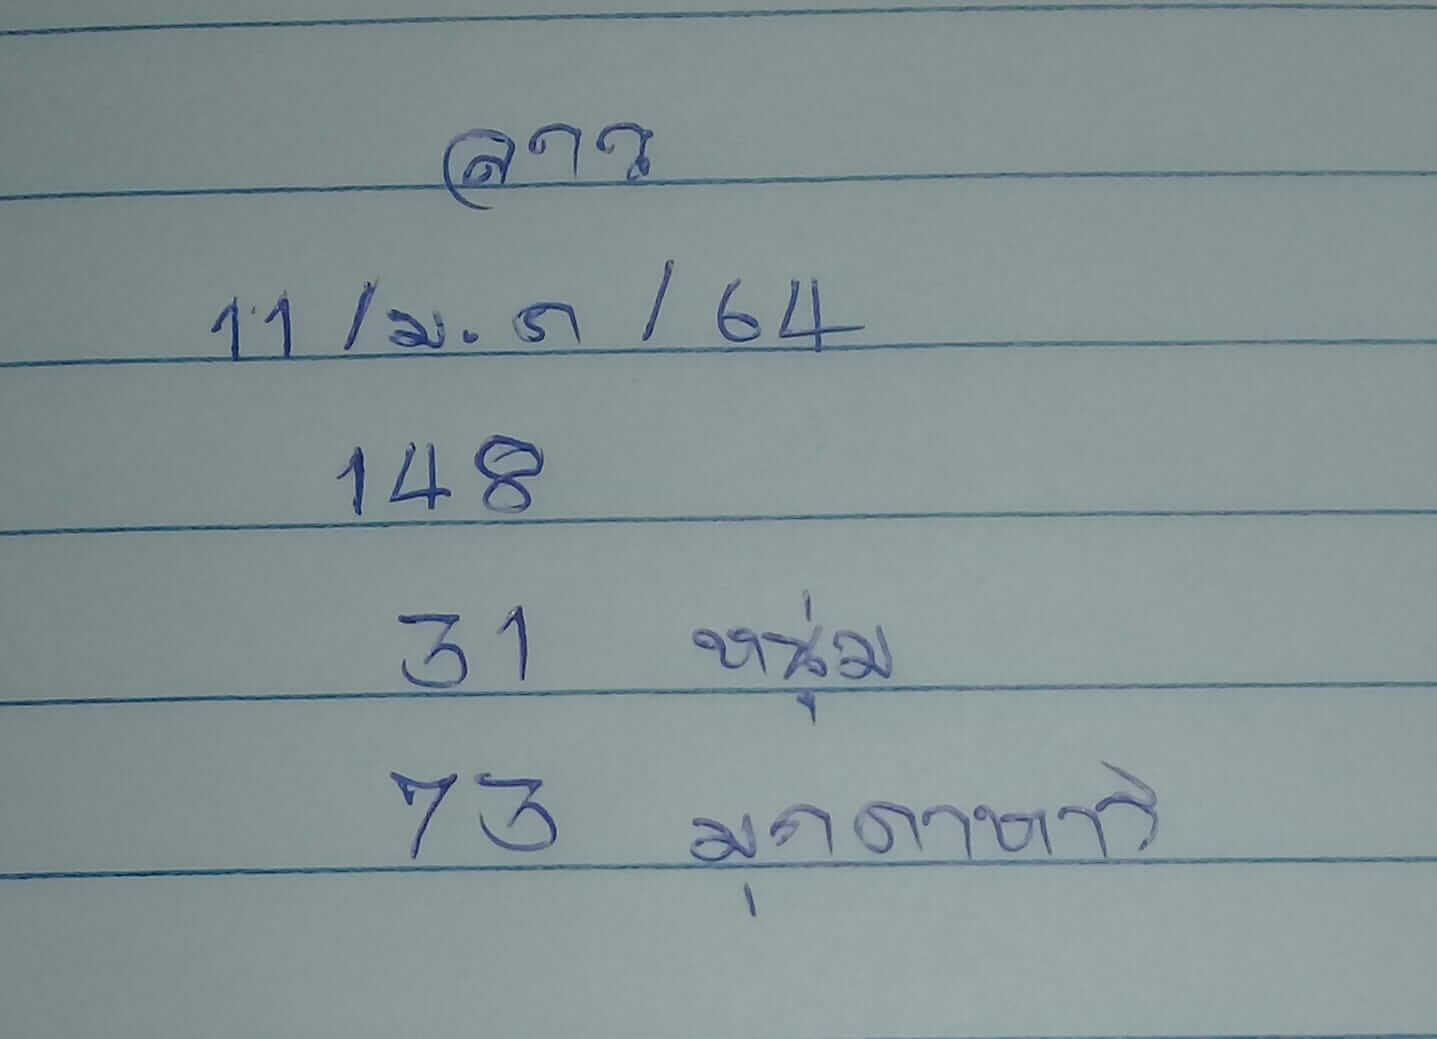 ลาว
11 / ม.ค / 64
148
31 หนุ่ม
73 มุกดาหาร